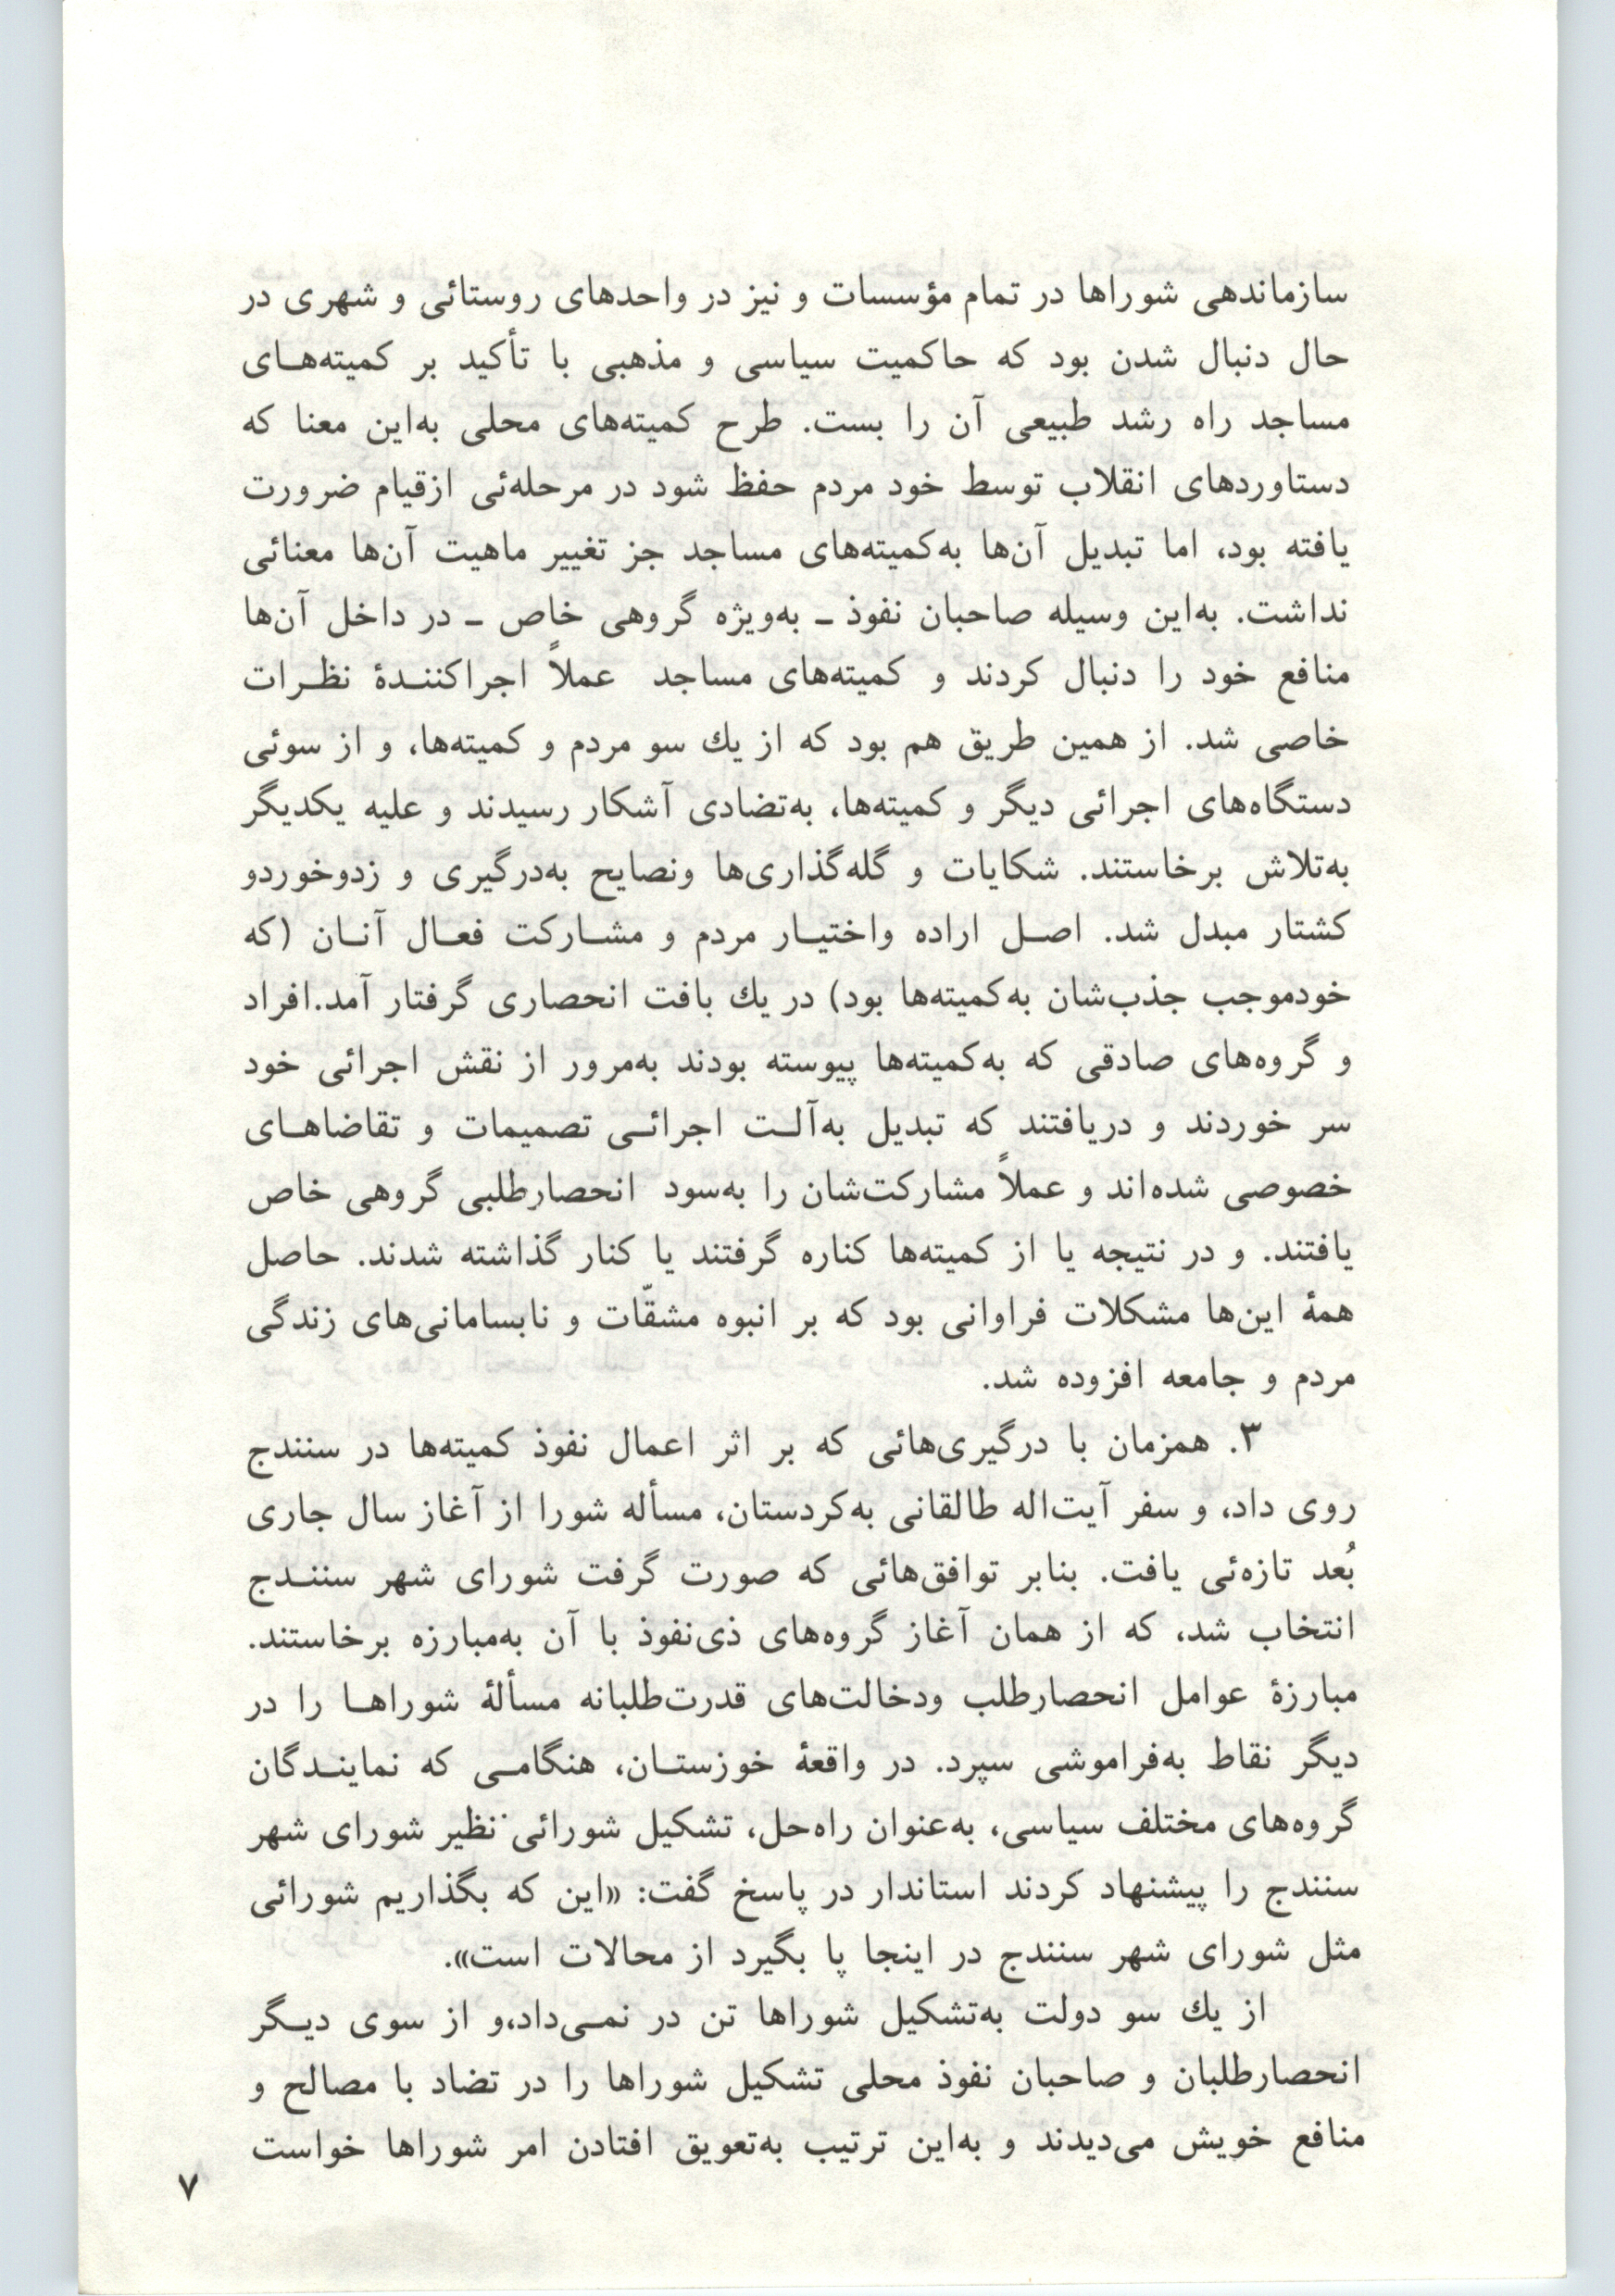 سازماندهی شوراها در تمام مؤسسات و نیز در واحدهای روستائی و شهری در
حال دنبال شدن بود که حاکمیت سیاسی و مذهبی با تأکید بر کمیته‌های
مساجد راه رشد طبیعی آن را بست. طرح کمیته‌های محلی به‌این معنا که
دستاوردهای انقلاب توسط خود مردم حفظ شود در مرحله‌ئی ازقیام ضرورت
یافته بود، اما تبدیل آن‌ها به‌کمیته‌های مساجد جز تغییر ماهیت آن‌ها معنائی
نداشت. به‌این وسیله صاحبان نفوذ ـ به‌ویژه گروهی خاص ـ در داخل آن‌ها
منافع خود را دنبال کردند و کمیته‌های مساجد عملاً اجراکنندهٔ نظرات
خاصی شد. از همین طریق هم بود که از یك سو مردم و کمیته‌ها، و از سوئی
دستگاه‌های اجرائی دیگر و کمیته‌ها، به‌تضادی آشکار رسیدند و علیه یکدیگر
به‌تلاش برخاستند. شکایات و گله‌گذاری‌ها ونصایح به‌درگیری و زدوخوردو
کشتار مبدل شد. اصل اراده واختیار مردم و مشارکت فعال آنان (که
خودموجب جذب‌شان به‌کمیته‌ها بود) در یك بافت انحصاری گرفتار آمد.افراد
و گروه‌های صادقی که به‌کمیته‌ها پیوسته بودند به‌مرور از نقش اجرائی خود
سر خوردند و دریافتند که تبدیل به‌آلت اجرائی تصمیمات و تقاضاهای
خصوصی شده‌اند و عملاً مشارکت‌شان را به‌سود انحصارطلبی گروهی خاص
یافتند. و در نتیجه یا از کمیته‌ها کناره گرفتند یا کنار گذاشته شدند. حاصل
همهٔ این‌ها مشکلات فراوانی بود که بر انبوه مشقّات و نابسامانی‌های زندگی
مردم و جامعه افزوده شد.
۳. همزمان با درگیری‌هائی که بر اثر اعمال نفوذ کمیته‌ها در سنندج
روی داد، و سفر آیت‌اله طالقانی به‌کردستان، مسأله شورا از آغاز سال جاری
بُعد تازه‌ئی یافت. بنابر توافق‌هائی که صورت گرفت شورای شهر سنندج
انتخاب شد، که از همان آغاز گروه‌های ذی‌نفوذ با آن به‌مبارزه برخاستند.
مبارزهٔ عوامل انحصارطلب ودخالت‌های قدرت‌طلبانه مسألهٔ شوراها را در
دیگر نقاط به‌فراموشی سپرد. در واقعهٔ خوزستان، هنگامی که نمایندگان
گروه‌های مختلف سیاسی، به‌عنوان راه‌حل، تشکیل شورائی نظیر شورای شهر
سنندج را پیشنهاد کردند استاندار در پاسخ گفت: «این که بگذاریم شورائی
مثل شورای شهر سنندج در اینجا پا بگیرد از محالات است».
از یك سو دولت به‌تشکیل شوراها تن در نمی‌داد،و از سوی دیگر
انحصارطلبان و صاحبان نفوذ محلی تشکیل شوراها را در تضاد با مصالح و
منافع خویش می‌دیدند و به‌این ترتیب به‌تعویق افتادن امر شوراها خواست
۷